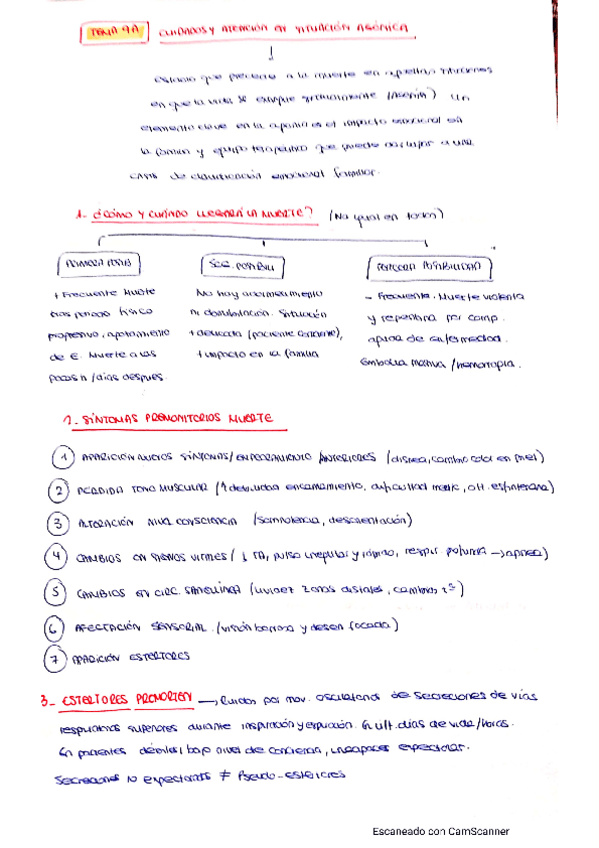 TEMA 9A CUIDADOS Y ATENCIÓN EN SITUACIÓN AGÓNICA
Estado que precede a la muerte en aquellas situaciones
en que la vida se extingue gradualmente (Agonía) Un
elemento clave en la agonía es el impacto emocional en
la familia y equipo terapéutico que puede dar lugar a una
crisis de claudicación emocional familiar.
1- ¿CÓMO Y CUÁNDO LLEGARÁ LA MUERTE? (No igual en todos)
PRIMERA POSIB
SEG. POSIBILI
TERCERA POSIBILIDAD
+ Frecuente Muerte
tras periodo físico
progresivo, agotamiento
de E. Muerte a las
pocas h / días después.
No hay adormecimiento
ni obnubilación. Situación
+ delicada (paciente consciente),
+ impacto en la familia
- Frecuente. Muerte violenta
y repentina por comp.
aguda de enfermedad.
Embolia masiva / hemorragia.
2. SÍNTOMAS PREMONITORIOS MUERTE
1 APARICIÓN NUEVOS SÍNTOMAS / EMPEORAMIENTO ANTERIORES (disnea, cambio color en piel)
2 PÉRDIDA TONO MUSCULAR (↑ debilidad encamamiento, dificultad medic, alt. esfínteres)
3 ALTERACIÓN NIVEL CONSCIENCIA (somnolencia, desorientación)
4 CAMBIOS EN SIGNOS VITALES / ↓ TA, pulso irregular y rápido, respir. profunda → apnea)
5 CAMBIOS EN CIRC. SANGUÍNEA (lividez zonas distales, cambios tª)
6 AFECTACIÓN SENSORIAL (visión borrosa y desenfocada)
7 APARICIÓN ESTERTORES
3- ESTERTORES PREMORTEM → Ruidos por mov. oscilatorios de secreciones de vías
respiratorias superiores durante inspiración y espiración. En últ. días de vida / horas.
En pacientes débiles, bajo nivel de conciencia, incapaces expectorar.
Secreciones no expectorables ≠ Pseudo-estertores
Escaneado con CamScanner